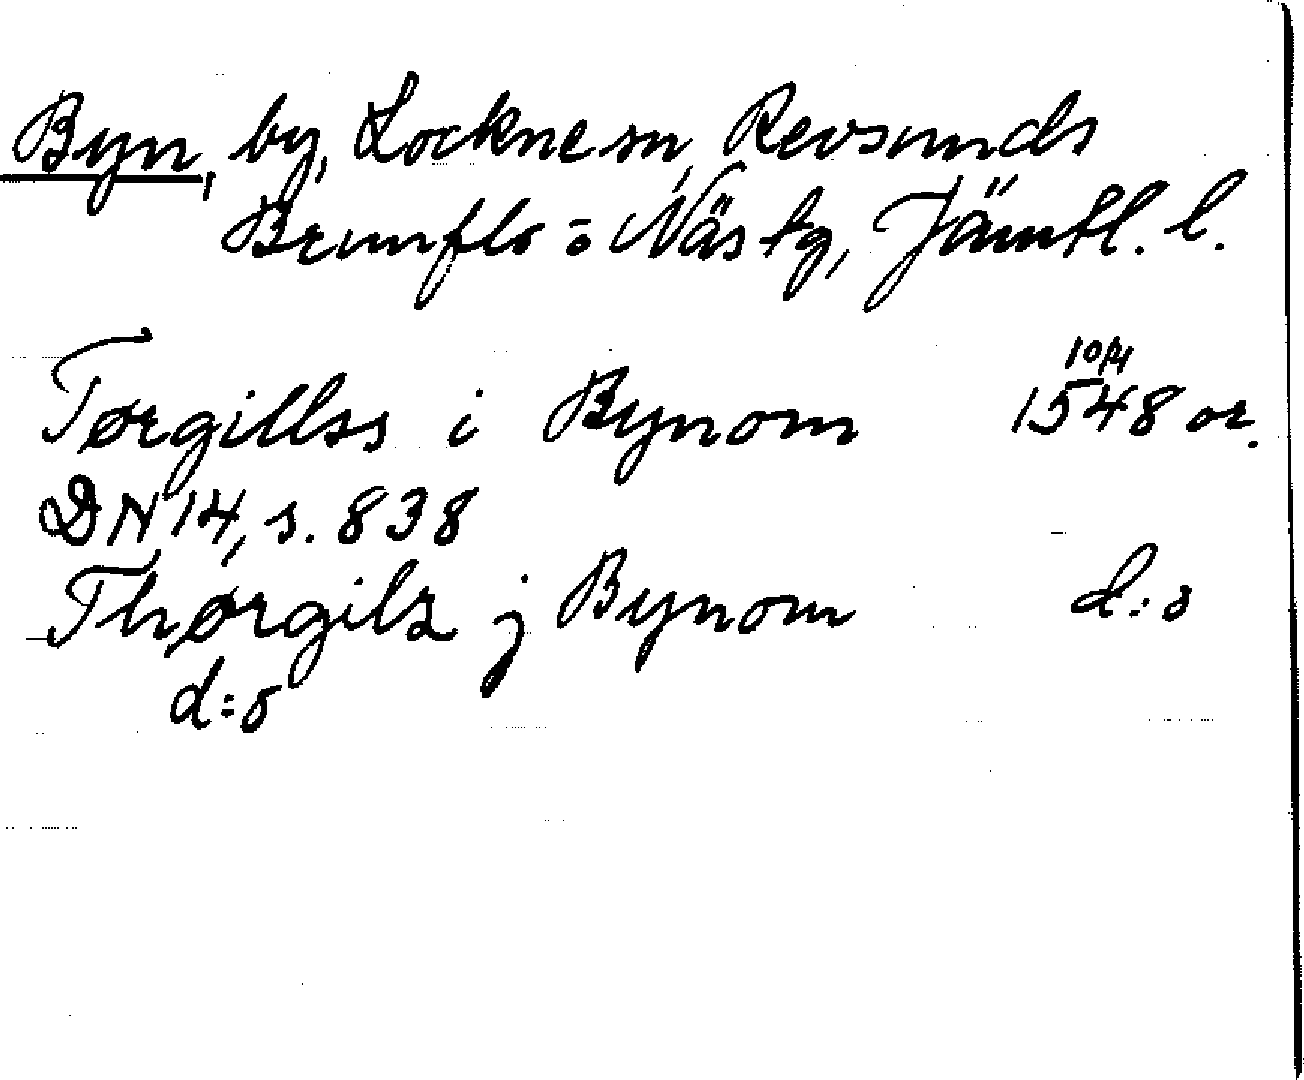 Byn, by, Lockne sn, Revsunds
Brunflo o Näs tg, Jämtl. l.
10/4
Tørgillss i Bynom 1548 or.
DN 14, s. 838
Thørgils j Bynom d:o
d:o